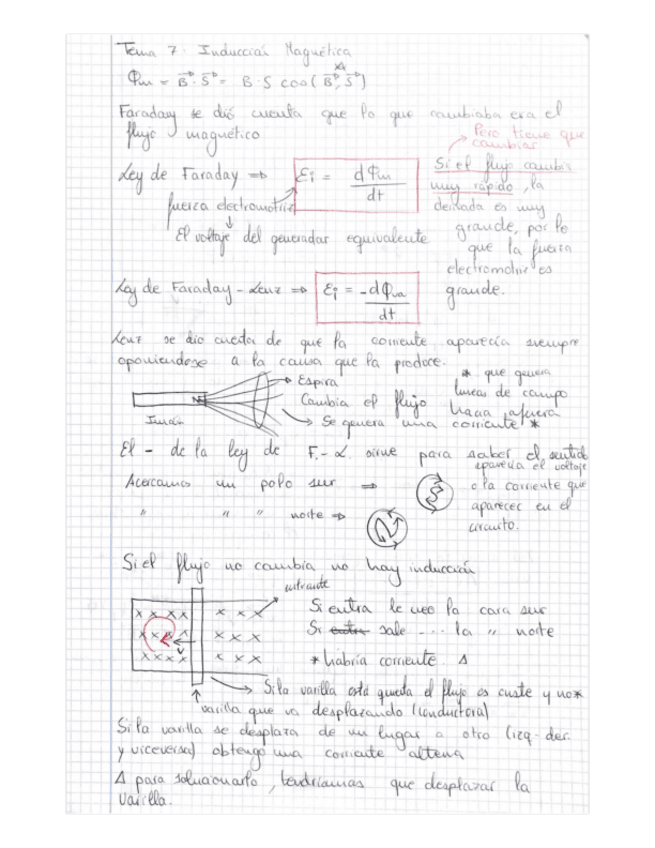 Tema 7. Inducción Magnética
Φm = B⃗·S⃗ = B·S cos(B⃗,S⃗)
Faraday se dió cuenta que lo que cambiaba era el
flujo magnético
→ Pero tiene que
cambiar
Ley de Faraday ⇒ εi = dΦm/dt
fuerza electromotriz
↓
El voltaje del generador equivalente
Si el flujo cambia
muy rápido, la
derivada es muy
grande, por lo
que la fuerza
electromotriz es
grande.
Ley de Faraday-Lenz ⇒ εi = -dΦm/dt
Lenz se dio cuenta de que la corriente aparecía siempre
oponiendose a la causa que la produce.
Espira
Cambia el flujo
Se genera una corriente *
Imán
* que genera
lineas de campo
hacia afuera
El - de la ley de F.-L. sirve para saber el sentido
aparecía el voltaje
o la corriente que
aparece en el
circuito.
Acercamos un polo sur ⇒ S
" " " norte ⇒ N
Si el flujo no cambia no hay inducción
entrante
x x x x x x x
x x x x x x x
x x x x x x x
v
Si entra le veo la cara sur
Si entra sale .... la " norte
* habría corriente Δ
Si la varilla está quieta el flujo es custe y no*
varilla que va desplazando (conductora)
Si la varilla se desplaza de un lugar a otro (izq-der.
y viceversa) obtengo una corriente alterna
Δ para solucionarlo, tendríamos que desplazar la
varilla.